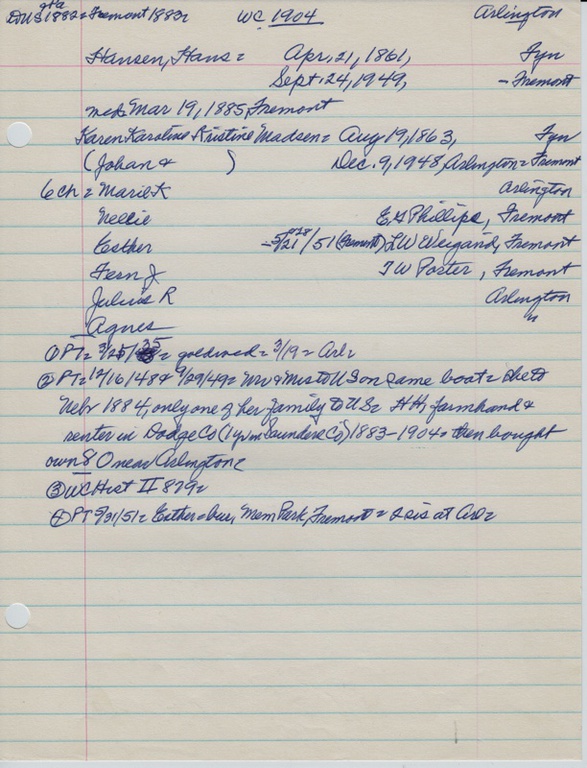 DUS 1882 = Fremont 1883 = WC 1904 Arlington
Hansen, Hans = Apr. 21, 1861, Fyn
Sept. 24, 1949, - Fremont
md. Mar 19, 1885, Fremont
Karen Karoline Kristine Madsen = Aug 19, 1863, Fyn
(Johan & ) Dec. 9, 1948, Arlington = Fremont
6 ch = Marie K Arlington
Nellie E G Phillips, Fremont
Esther - 5/21/51 (Fremont) L W Weigand, Fremont
Fern J T W Porter, Fremont
Julius R Arlington
Agnes "
① PT = 3/25/35 = goldwed = 3/19 = Arl =
② PT = 12/16/48 & 9/29/49 = Mr & Mrs to US on same boat = she to
Nebr 1884, only one of her family to US = HH, farmhand &
renter in Dodge Co (1 yr in Saunders Co) 1883-1904 = then bought
own 80 near Arlington =
③ WC Hist II 879 =
④ PT 5/31/51 = Esther = bur, Mem Park, Fremont = 2 sis at Arl =